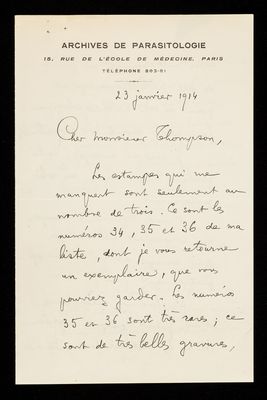 ARCHIVES DE PARASITOLOGIE
15, RUE DE L'ÉCOLE DE MÉDECINE, PARIS
TÉLÉPHONE 803-51
23 janvier 1914
Cher Monsieur Thompson,
Les estampes qui me
manquent sont seulement au
nombre de trois. Ce sont les
numéros 34, 35 et 36 de ma
liste, dont je vous retourne
un exemplaire, que vous
pourriez garder. Les numéros
35 et 36 sont très rares ; ce
sont de très belles gravures,